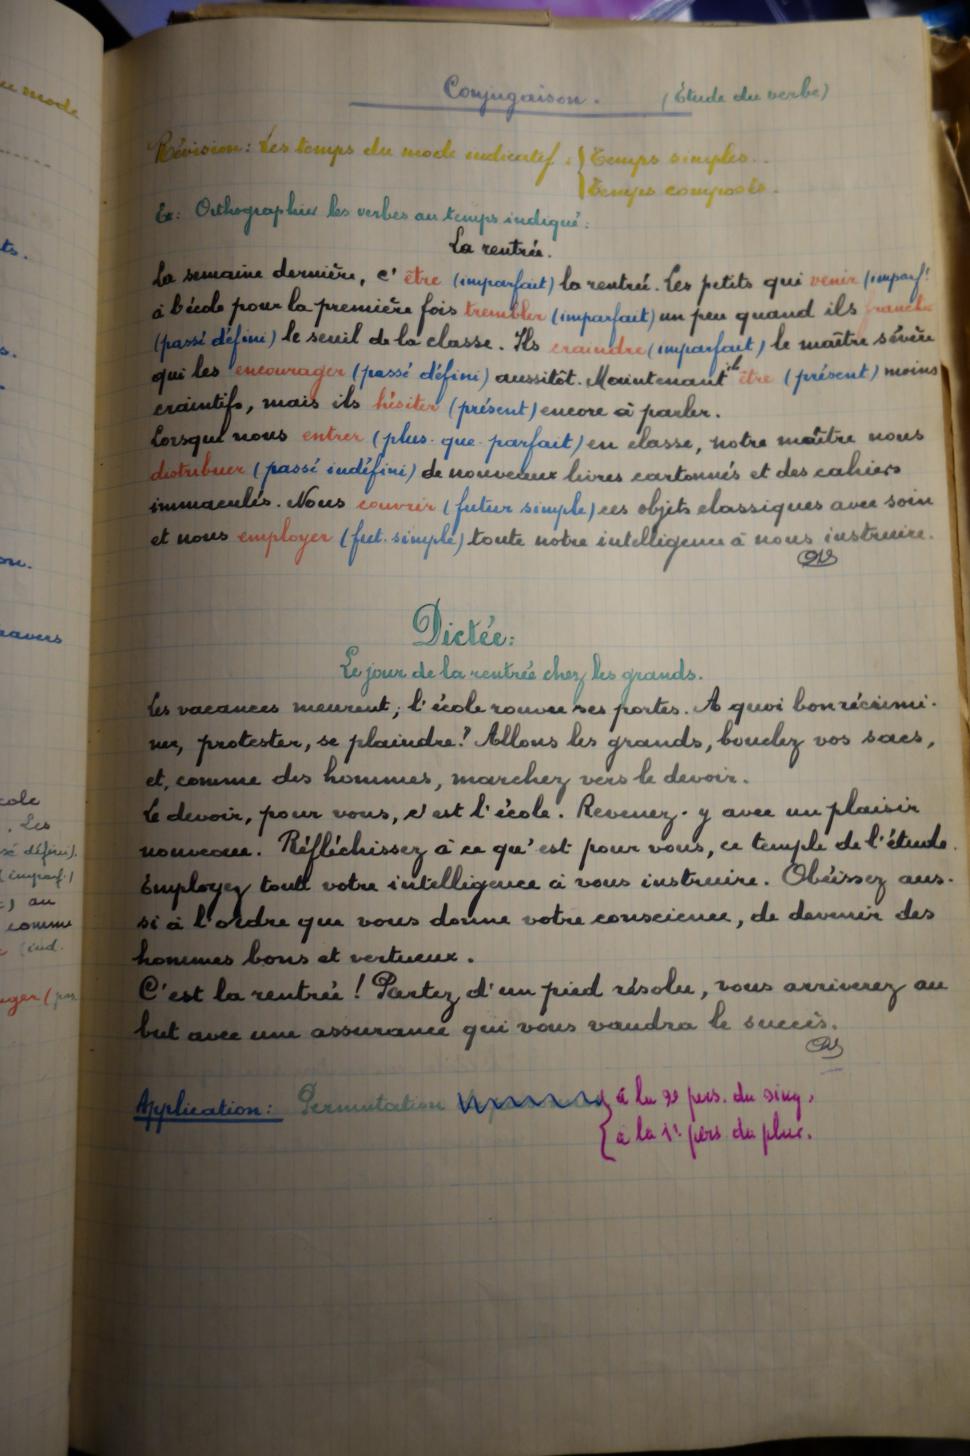 u mode
Conjugaison. (Étude du verbe)
Révision: Les temps du mode indicatif: Temps simples..
Temps composés.
Ex: Orthographier les verbes au temps indiqué:
La rentrée.
La semaine dernière, c' être (imparfait) la rentrée. Les petits qui venir (imparf.
à l'école pour la première fois trembler (imparfait) un peu quand ils
(passé défini) le seuil de la classe. Ils craindre (imparfait) le maître sévère
qui les encourager (passé défini) aussitôt. Maintenant ils être (présent) moins
craintifs, mais ils hésiter (présent) encore à parler.
Lorsque nous entrer (plus-que-parfait) en classe, notre maître nous
distribuer (passé indéfini) de nouveaux livres cartonnés et des cahiers
immaculés. Nous couvrir (futur simple) ces objets classiques avec soin
et nous employer (fut. simple) toute notre intelligence à nous instruire.
Dictée:
Le jour de la rentrée chez les grands.
Les vacances meurent; l'école rouvre ses portes. A quoi bon récrimi-
ner, protester, se plaindre? Allons les grands, bouclez vos sacs,
et, comme des hommes, marchez vers le devoir.
Le devoir, pour vous, c'est l'école. Revenez-y avec un plaisir
nouveau. Réfléchissez à ce qu'est pour vous, ce temple de l'étude.
Employez toute votre intelligence à vous instruire. Obéissez aus-
si à l'ordre que vous donne votre conscience, de devenir des
hommes bons et vertueux.
C'est la rentrée! Partez d'un pied résolu, vous arriverez au
but avec une assurance qui vous vaudra le succès.
Application: Permutation à la 2e pers. du sing.
à la 1re pers du plur.